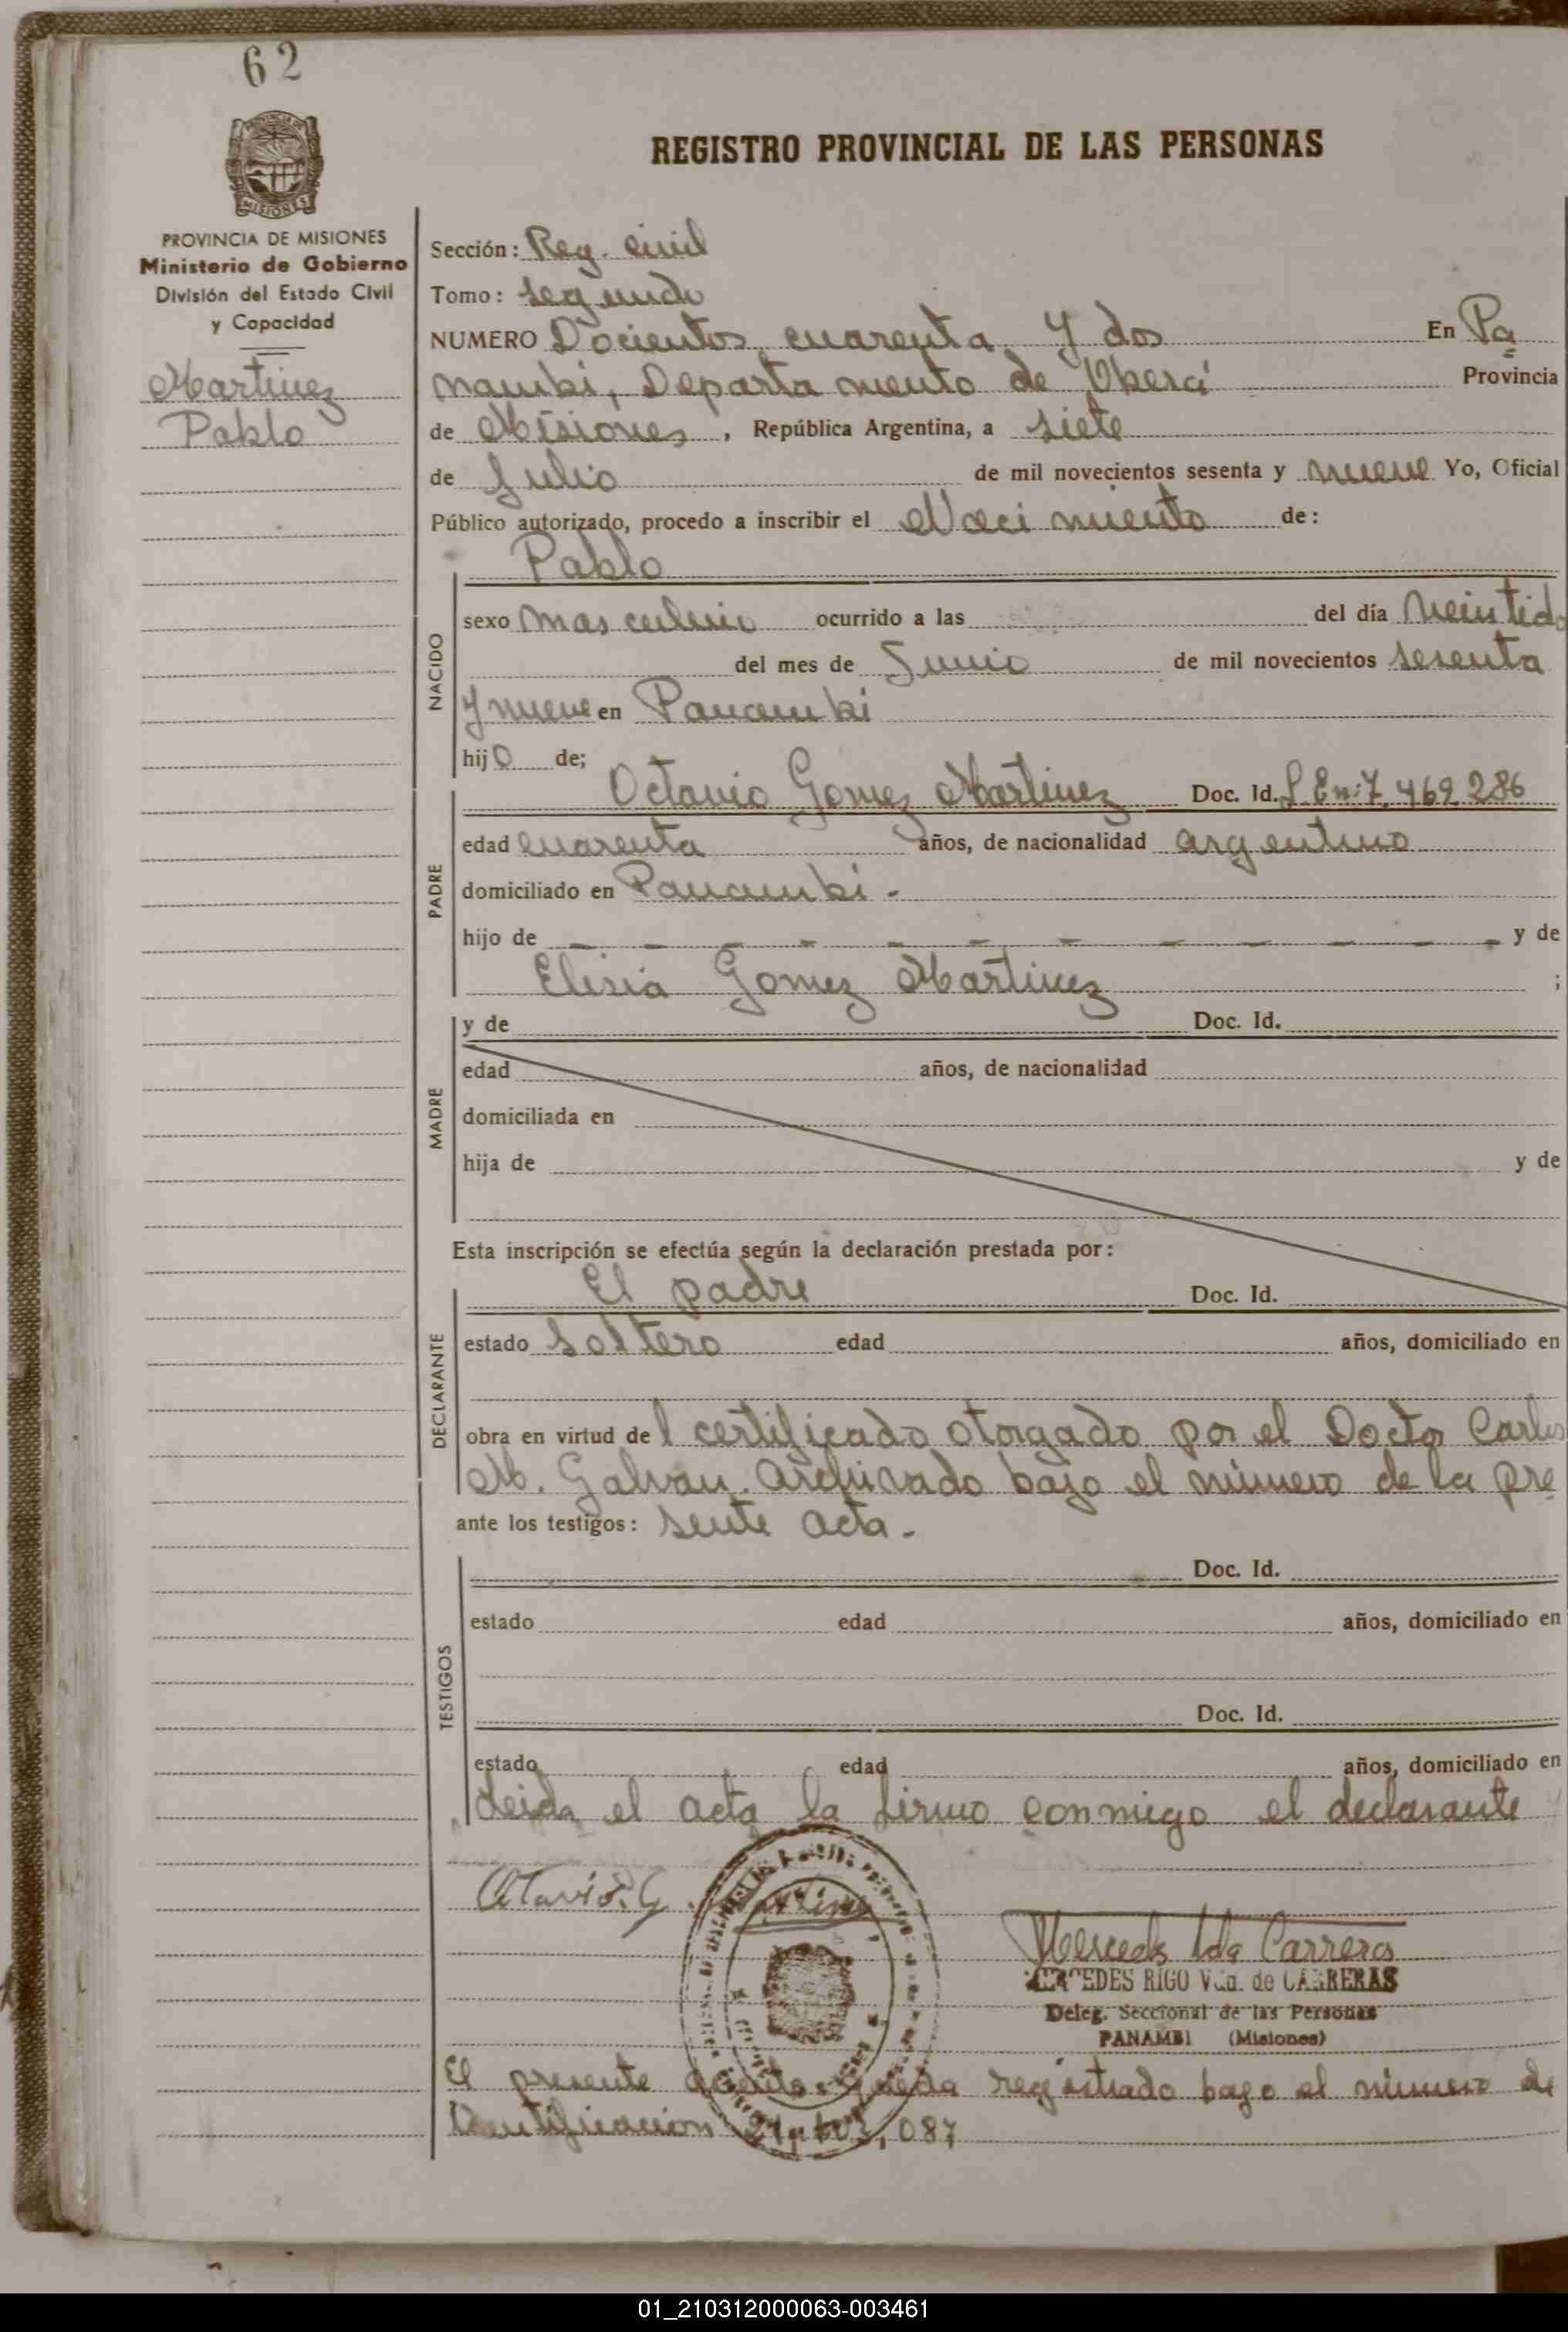 62
PROVINCIA DE
MISIONES
REGISTRO PROVINCIAL DE LAS PERSONAS
PROVINCIA DE MISIONES
Ministerio de Gobierno
División del Estado Civil
y Capacidad
Martinez
Pablo
Sección: Reg. Civil
Tomo: Segundo
NUMERO Docientos cuarenta y dos En Pa
nambi, Departamento de Oberá Provincia
de Misiones, República Argentina, a siete
de Julio de mil novecientos sesenta y nueve Yo, Oficial
Público autorizado, procedo a inscribir el Nacimiento de:
Pablo
NACIDO
sexo masculino ocurrido a las del día veintido
del mes de Junio de mil novecientos sesenta
y nueve en Panambi
hijo de;
PADRE
Octavio Gomez Martinez Doc. Id. L. En: 7.469.286
edad cuarenta años, de nacionalidad argentino
domiciliado en Panambi -
hijo de - - - - - - - - - - - - y de
Elisia Gomez Martinez ;
MADRE
y de Doc. Id.
edad años, de nacionalidad
domiciliada en
hija de y de
Esta inscripción se efectúa según la declaración prestada por:
DECLARANTE
El padre Doc. Id.
estado soltero edad años, domiciliado en
obra en virtud del certificado otorgado por el Doctor Carlos
M. Galvan. Archivado bajo el número de la pre
ante los testigos: sente acta.-
TESTIGOS
Doc. Id.
estado edad años, domiciliado en
Doc. Id.
estado edad años, domiciliado en
Leida el acta la firmo conmigo el declarante
Otavio. G. Martinez
Mercedes Carreras
MERCEDES RIGO Vda. de CARRERAS
Deleg. Seccional de las Personas
PANAMBI (Misiones)
El presente queda registrado bajo el número de
Identificación 087
01_210312000063-003461